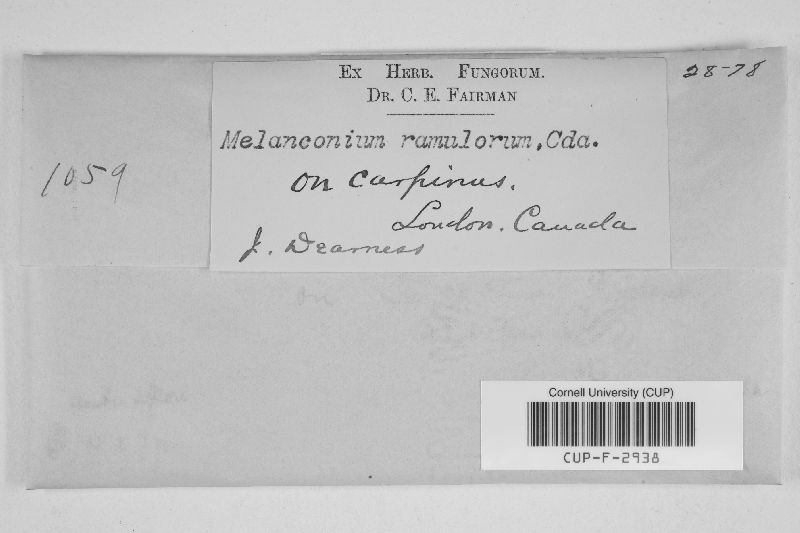 Ex Herb. Fungorum.
Dr. C. E. Fairman
28-78
Melanconium ramulorum, Cda.
on Carpinus.
London. Canada
J. Dearness
1059
on
Cornell University (CUP)
CUP-F-2938